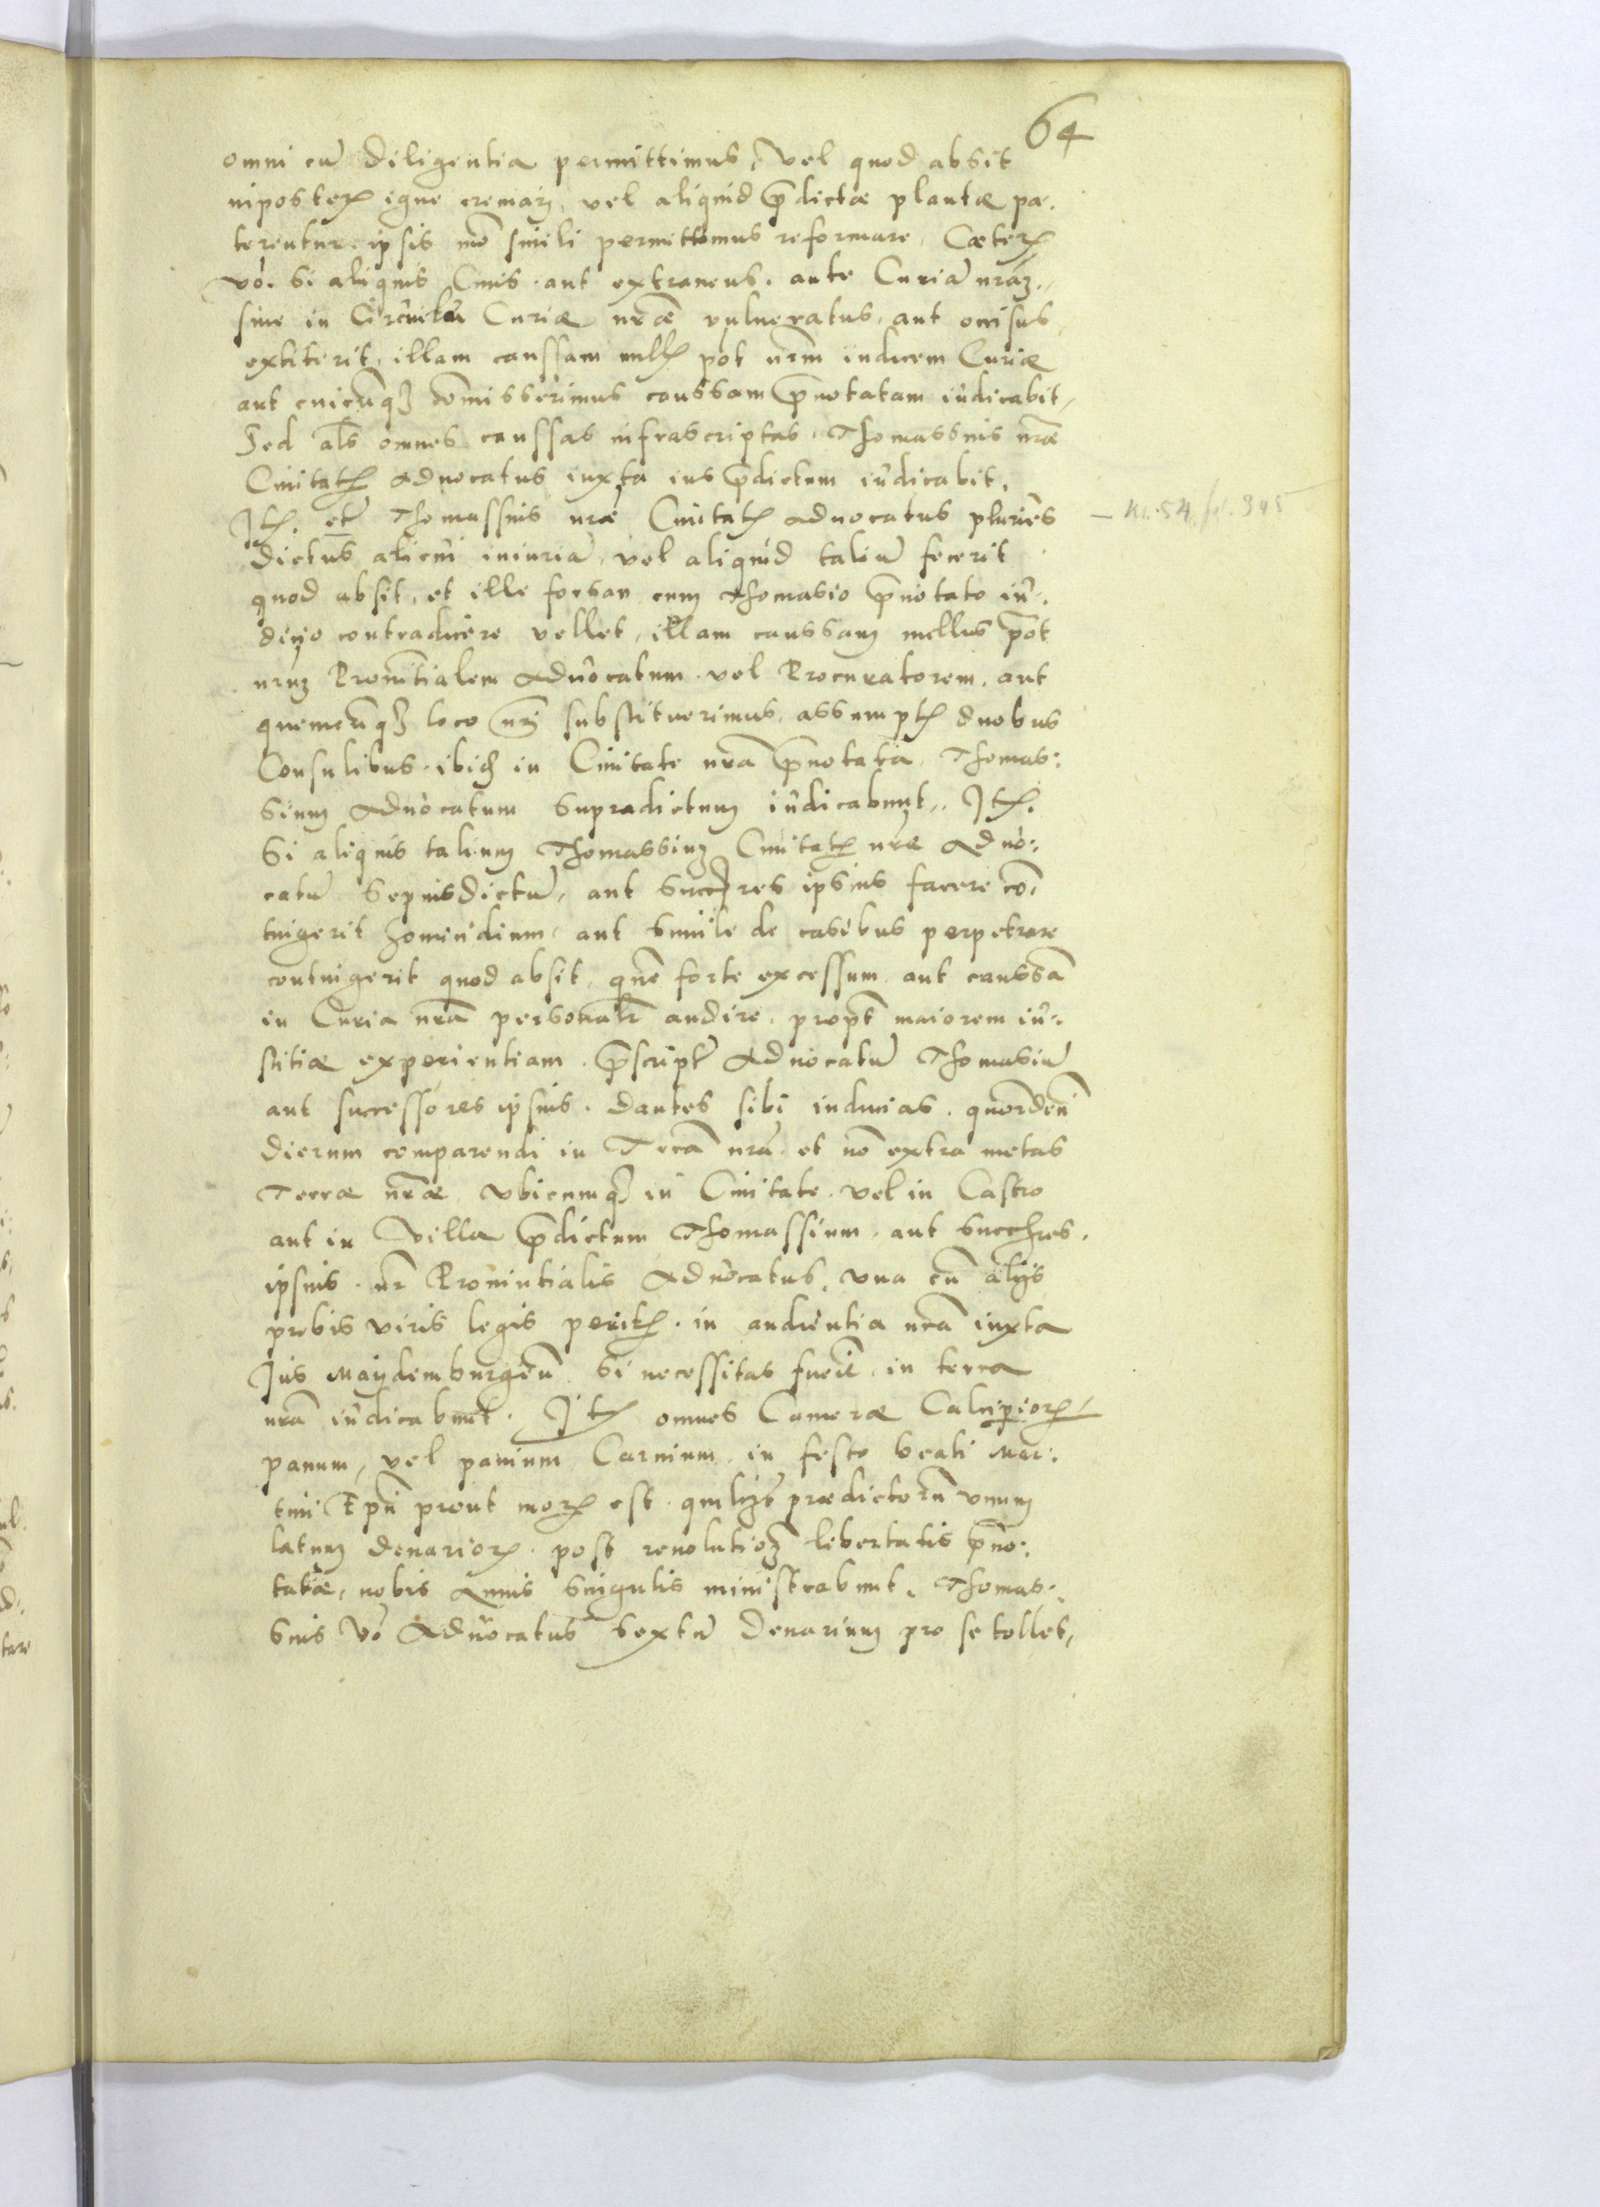 64
omni cū diligentia permittimus, vel quod absit
inposterꝝ igne cremarj, vel aliquid p̄dictæ plantæ pa-
terentur. ipsis mō simili permittimus reformare. Cæterꝝ
vō. si aliquis Ciuis. aut extraneus. ante Curiā nrām,
siue in Circuitu Curiæ nrāe vulneratus, aut occisus
extiterit, illam caussam nullꝰ pōt nr̄m iudicem Curiæ
aut cuicūq₃ cōmisserimus caussam p̄notatam iudicabit,
Sed al̄s omnes caussas infrascriptas. Thomassius nr̄æ
Ciuitatꝭ Aduocatus iuxta ius p̄dictum iudicabit.
Jtꝫ. et̄ Thomassius nræ Ciuitatꝭ aduocatus pluries
dictus alicui iniuriā, vel aliquid taliū fecerit
quod absit, et ille forsan cum Thomasio p̄notato iu-
dicio contradicere vellet, illam caussam nullus p̄ōt
nrūm Prouīntialem Aduocatum. vel Procuratorem. aut
quemcūq₃ loco nr̄i substituerimus, assumptꝭ duobus
Consulibus. ibid₃ in Ciuitate nrā p̄notata. Thomas:
sium Aduocatum supradictum iudicabunt. Jtꝫ.
Si aliquis talium Thomassium Ciuitatꝭ nræ Aduo:
catū sepiusdictū, aut succ̄res ipsius facere cō-
tingerit homicidium, aut simile de casibus perpetrare
contingerit quod absit, quē forte excessum aut caussā
in Curia nrā personalr̄ audire. propt̄ maiorem iu-
stitiæ experientiam. p̄script̄ Aduocatū Thomasiū
aut successores ipsius. dantes sibi inducias. quordecī
dierum comparendi in Terrā nrā. et nō extra metas
Terræ nr̄æ vbicumq₃ in Ciuitate. vel in Castro
aut in Villa p̄dictum Thomassium. aut succ̄res.
ipsius. nr̄ Prouintialis Aduocatus. vna cū alijs
probis viris legis peritꝭ. in audientia nrā iuxta
Jus Maydemburgēn̄. si necessitas fuerit. in terra
nrā iudicabunt. Jtꝫ omnes Cameræ Calciperiorꝝ
panum, vel panium Carnium. in festo beati Mar:
tini Ep̄ī prout morꝭ est. quilibet prædictorū vnum
latum denariorꝝ. post reuolutioēm libertatis p̄no:
tatæ, nobis Annis singulis ministrabunt. Thomas:
sius vō Aduocatus sextū denarium pro se tollet,